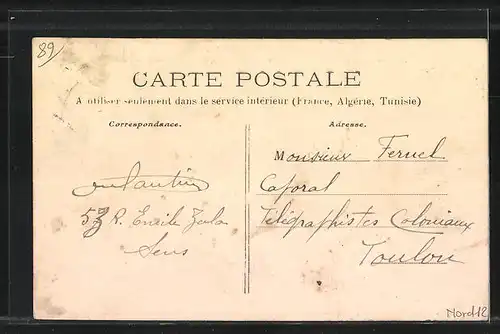 89
CARTE POSTALE
A utiliser seulement dans le service intérieur (France, Algérie, Tunisie)
Correspondance.
Adresse.
R. Emile Zola
Sens
Monsieur Feruel
Caporal
Télégraphistes Coloniaux
Toulon
Nord12